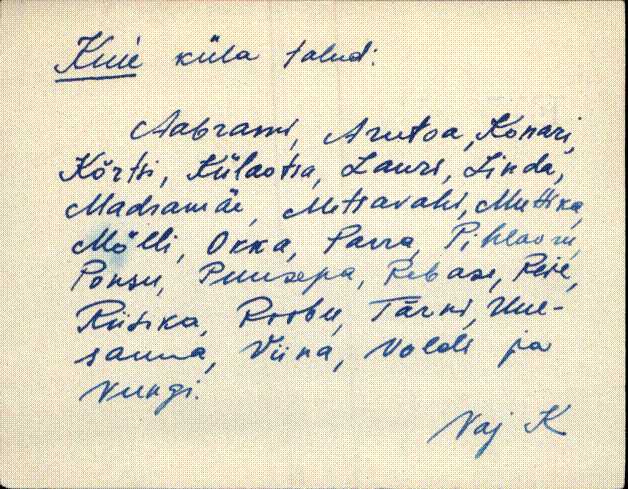 Kuie küla talud:
Aabrami, Arutoa, Konari,
Kõrtsi, Külaotsa, Lauri, Linda,
Madsamäe, Metsavahi, Mutsika,
Mölli, Okka, Parra, Pihlaoru,
Ponsu, Puusepa, Rebase, Reie,
Riisika, Roobu, Tärni, Uue-
sauna, Viina, Voldi ja
Vungi.
Vaj K